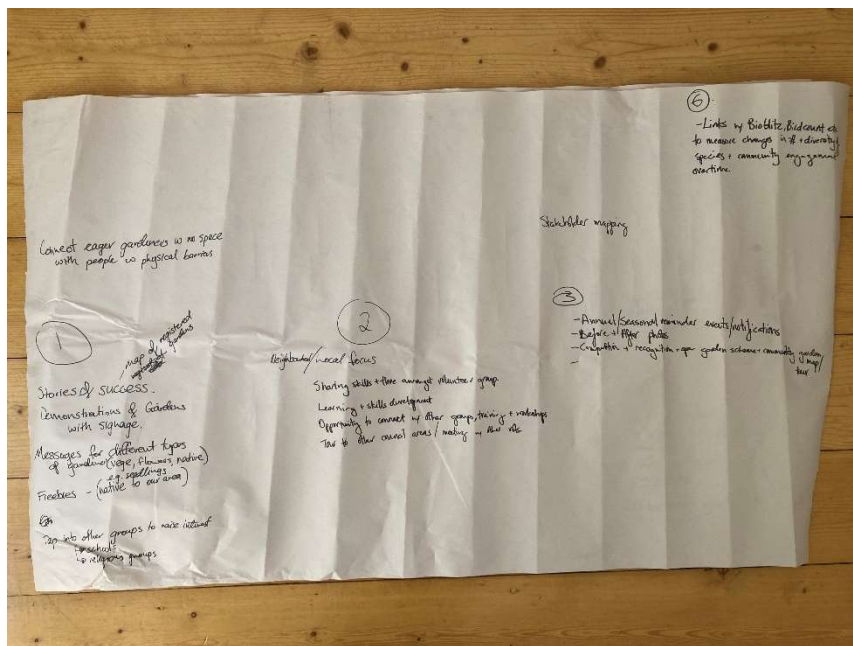 Connect eager gardeners w no space
with people w physical barriers
1
map of registered
gardens
Stories of success.
Demonstrations of Gardens
with signage.
Messages for different types
of gardener (vege, flowers, native)
e.g. seedlings
Freebies - (native to our area)
Tap into other groups to raise interest
↳ schools
↳ religious groups
2
/local focus
Sharing skills + time amongst volunteer group.
Learning + skills development
Opportunity to connect w other groups, training + workshops
Tour to other council areas / meeting w other
Stakeholder mapping
3
- Annual/Seasonal reminder events/notifications
- Before + After photos
- Competition + recognition + open garden scheme + community garden
map/
tour
-
6
- Links w Bioblitz, Birdcount etc
to measure changes in # + diversity of
species + community engagement
overtime.